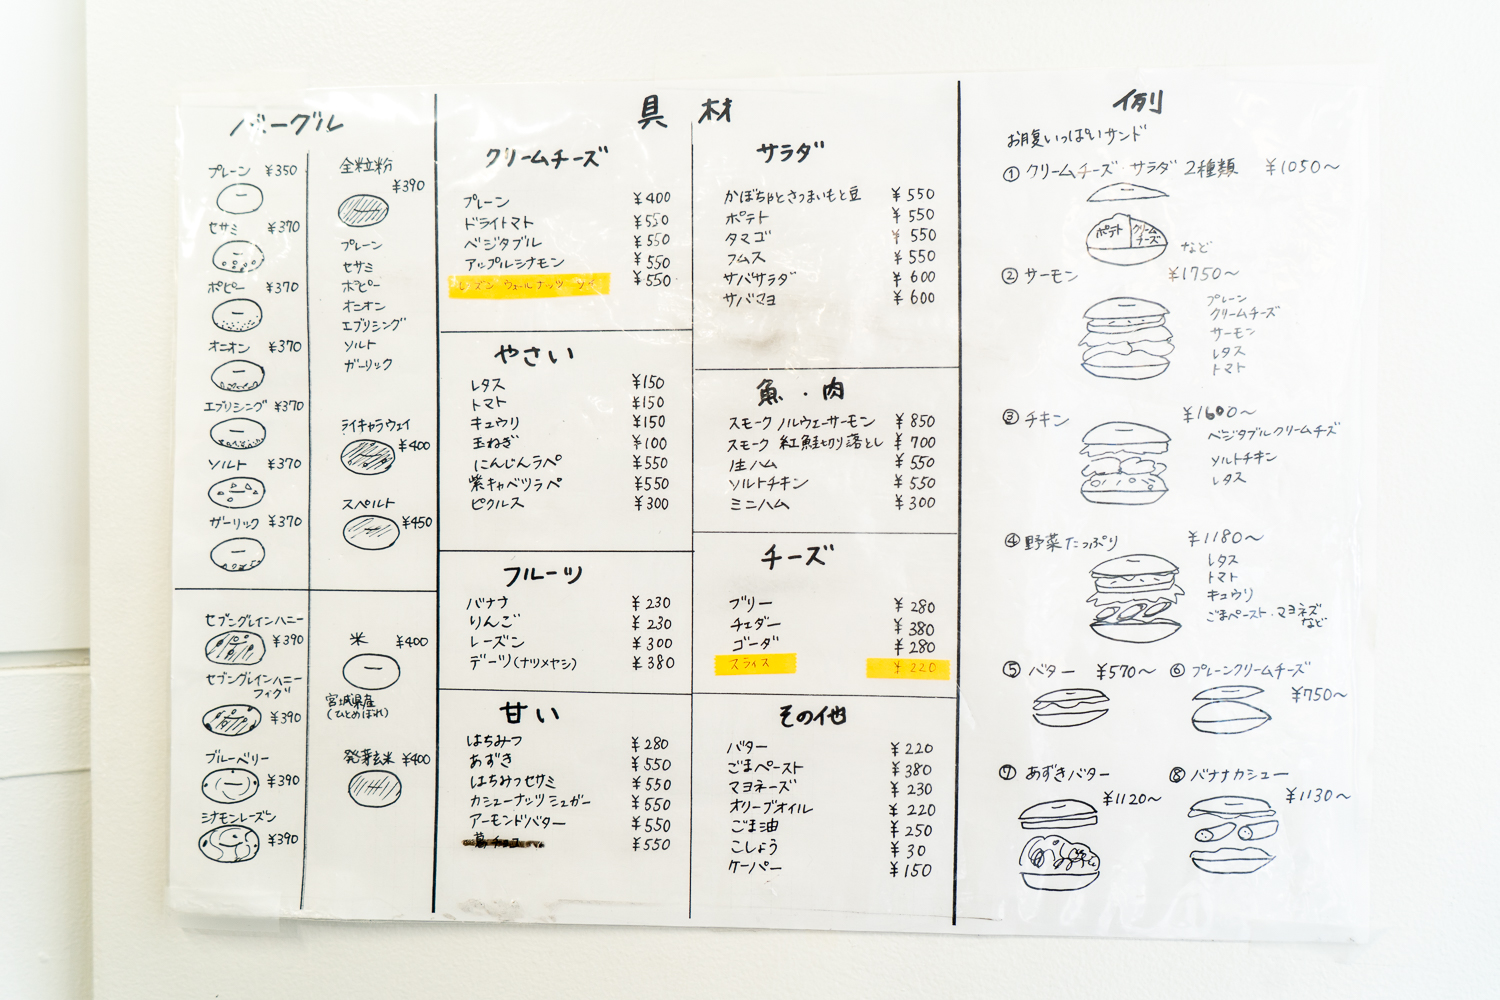 バーグル
プレーン ¥350
セサミ ¥370
ポピー ¥370
オニオン ¥370
エブリシング ¥370
ソルト ¥370
ガーリック ¥370
全粒粉
¥390
プレーン
セサミ
ポピー
オニオン
エブリシング
ソルト
ガーリック
ライキャラウェイ
¥400
スペルト
¥450
セブングレインハニー
¥390
セブングレインハニー
フィグ
¥390
ブルーベリー
¥390
シナモンレーズン
¥390
米 ¥400
宮城県産
(ひとめぼれ)
発芽玄米 ¥400
具材
クリームチーズ
プレーン ¥400
ドライトマト ¥550
ベジタブル ¥550
アップルシナモン ¥550
レーズン ウォールナッツ ¥550
やさい
レタス ¥150
トマト ¥150
キュウリ ¥150
玉ねぎ ¥100
にんじんラペ ¥550
紫キャベツラペ ¥550
ピクルス ¥300
フルーツ
バナナ ¥230
りんご ¥230
レーズン ¥300
デーツ(ナツメヤシ) ¥380
甘い
はちみつ ¥280
あずき ¥550
はちみつセサミ ¥550
カシューナッツシュガー ¥550
アーモンドバター ¥550
チョコ ¥550
サラダ
かぼちゃとさつまいもと豆 ¥550
ポテト ¥550
タマゴ ¥550
フムス ¥550
サバサラダ ¥600
サバマヨ ¥600
魚・肉
スモークノルウェーサーモン ¥850
スモーク紅鮭切り落とし ¥700
生ハム ¥550
ソルトチキン ¥550
ミニハム ¥300
チーズ
ブリー ¥280
チェダー ¥380
ゴーダ ¥280
スライス ¥220
その他
バター ¥220
ごまペースト ¥380
マヨネーズ ¥230
オリーブオイル ¥220
ごま油 ¥250
こしょう ¥30
ケーパー ¥150
例
お腹いっぱいサンド
① クリームチーズ・サラダ 2種類 ¥1050〜
ポテト クリームチーズ
など
② サーモン ¥1750〜
プレーン
クリームチーズ
サーモン
レタス
トマト
③ チキン ¥1600〜
ベジタブルクリームチーズ
ソルトチキン
レタス
④ 野菜たっぷり ¥1180〜
レタス
トマト
キュウリ
ごまペースト・マヨネーズ
など
⑤ バター ¥570〜
⑥ プレーンクリームチーズ
¥750〜
⑦ あずきバター
¥1120〜
⑧ バナナカシュー
¥1130〜